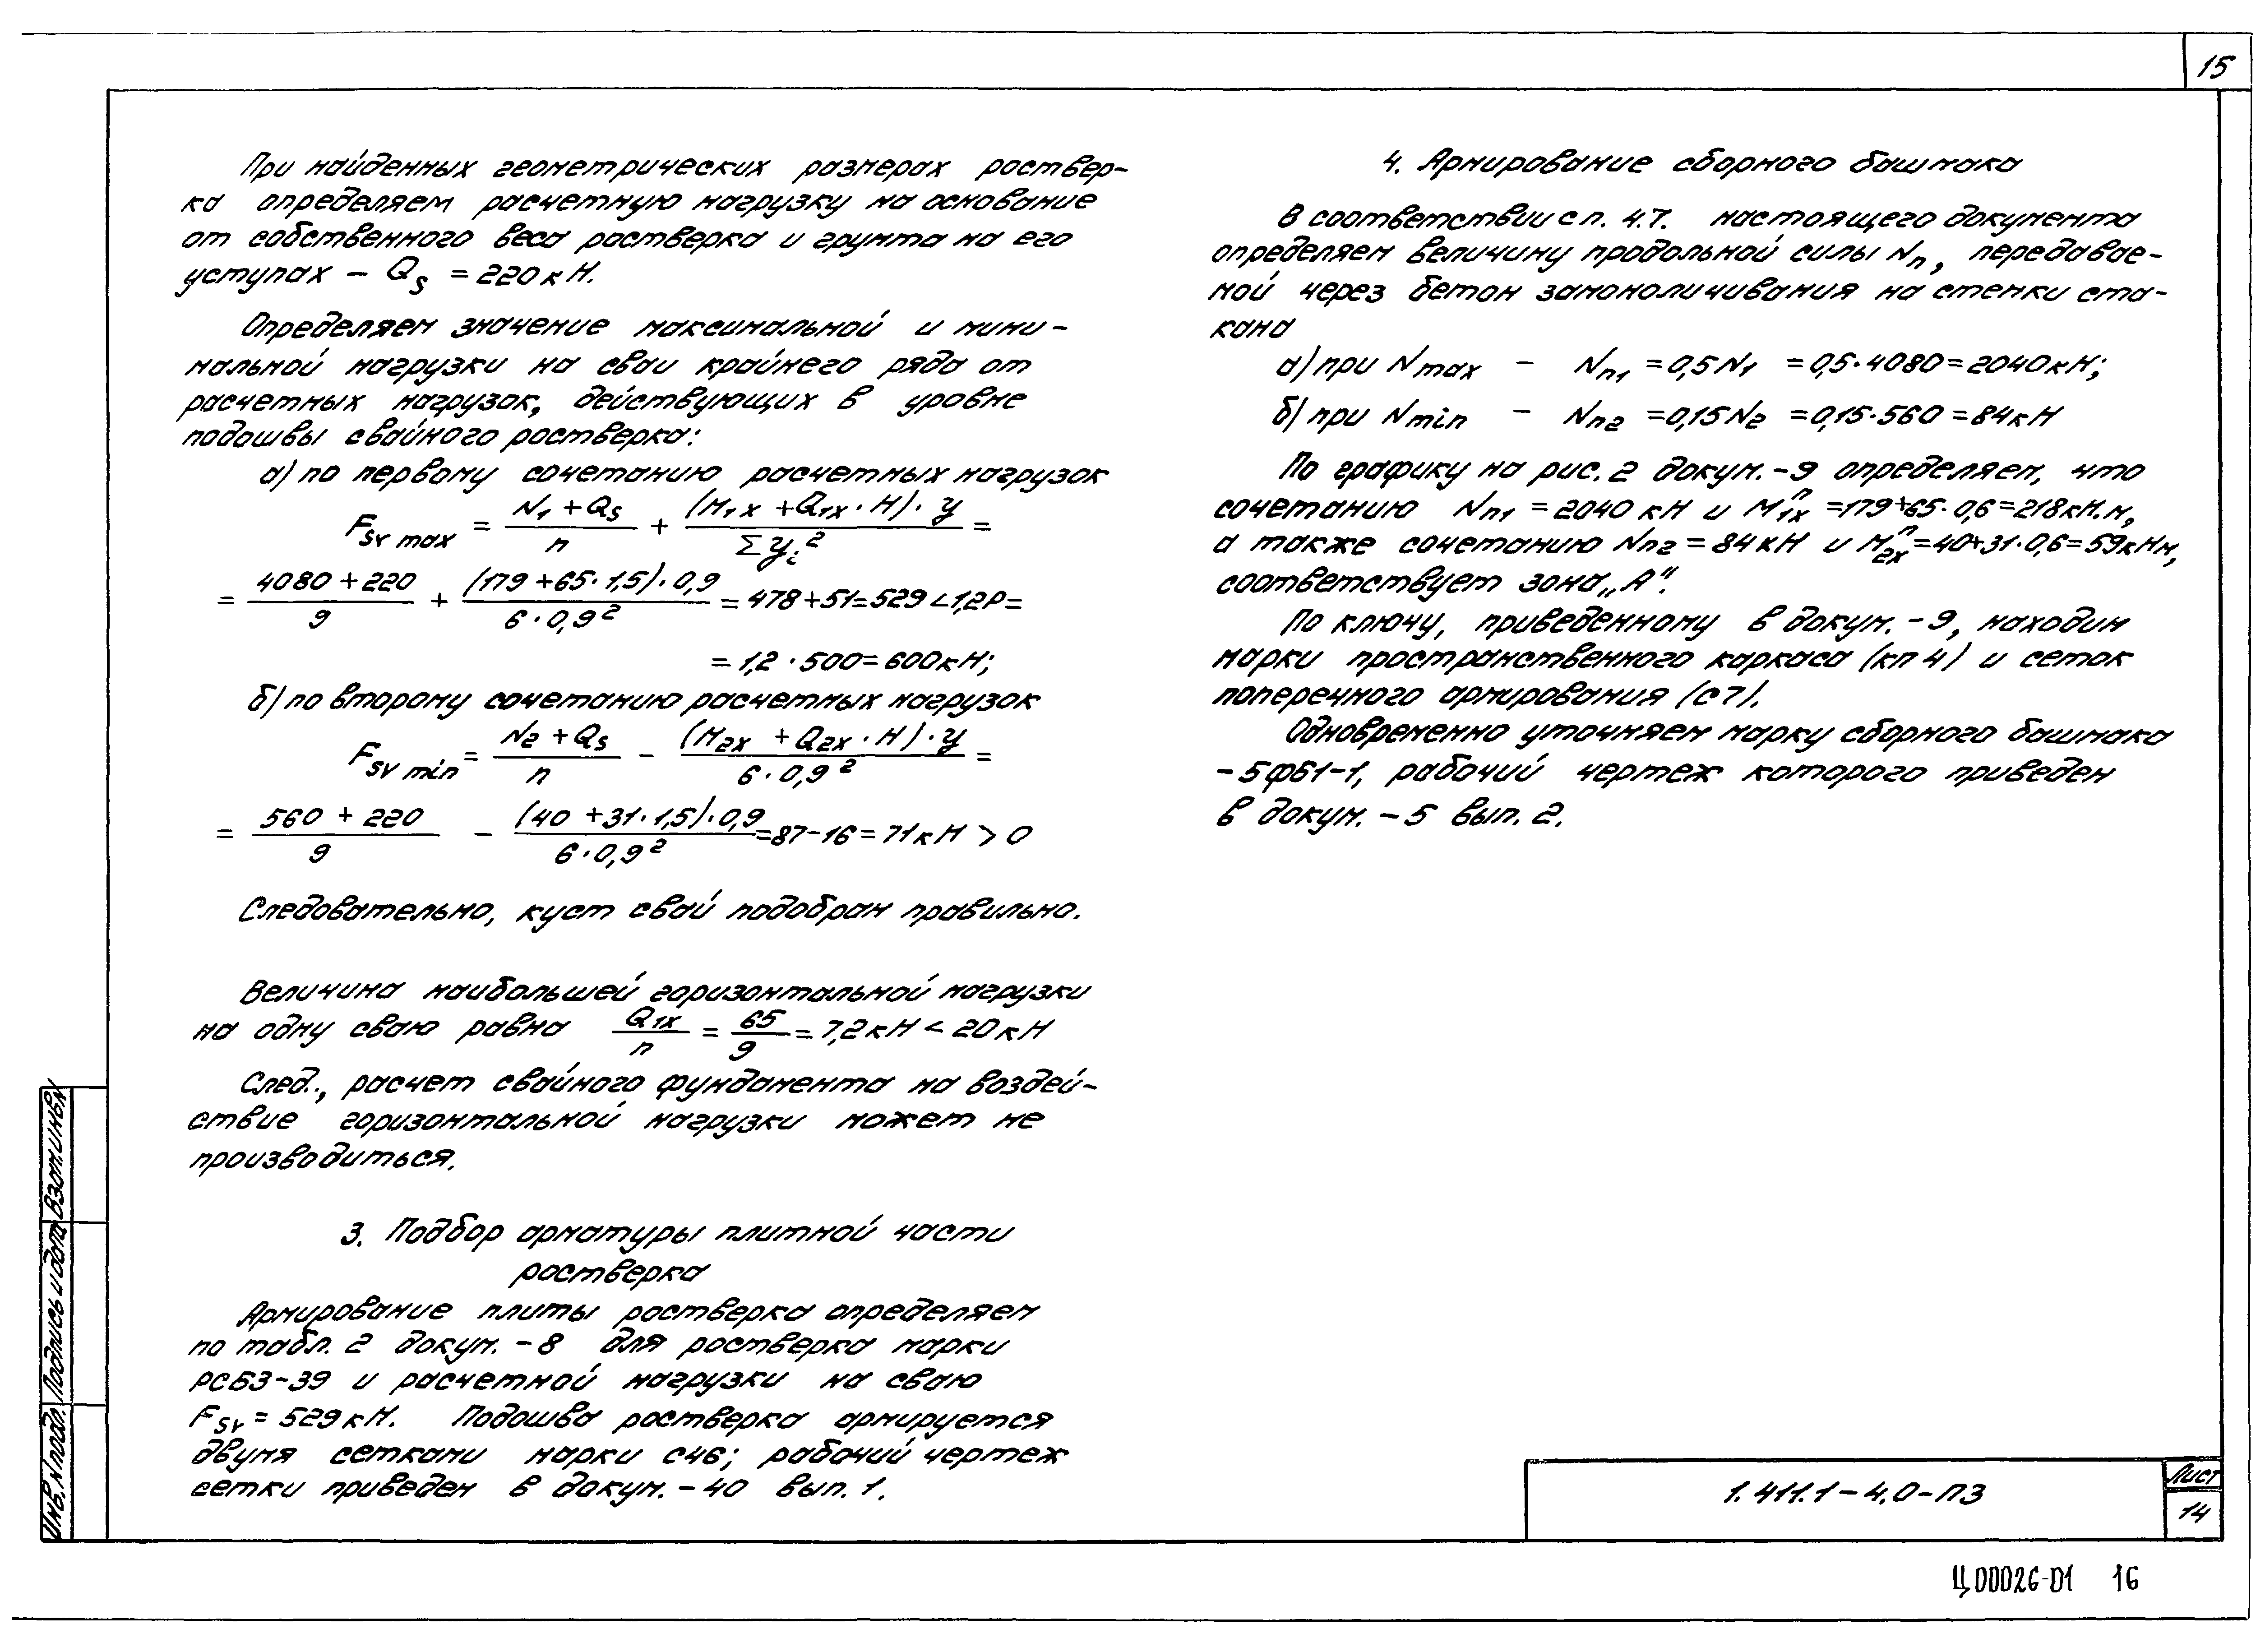 15
При найденных геометрических размерах роствер-
ка определяем расчетную нагрузку на основание
от собственного веса ростверка и грунта на его
уступах – Qs = 220кН.
Определяем значение максимальной и мини-
мальной нагрузки на сваи крайнего ряда от
расчетных нагрузок, действующих в уровне
подошвы свайного ростверка:
а) по первому сочетанию расчетных нагрузок
Fsv max = (N1 + Qs)/n + ((M1x + Q1x · H) · y)/(Σ yi²) =
= (4080 + 220)/9 + ((179 + 65 · 1,5) · 0,9)/(6 · 0,9²) = 478 + 51 = 529 < 1,2P =
= 1,2 · 500 = 600кН;
б) по второму сочетанию расчетных нагрузок
Fsv min = (N2 + Qs)/n – ((M2x + Q2x · H) · y)/(6 · 0,9²) =
= (560 + 220)/9 – ((40 + 31 · 1,5) · 0,9)/(6 · 0,9²) = 87 – 16 = 71кН > 0
Следовательно, куст свай подобран правильно.
Величина наибольшей горизонтальной нагрузки
на одну сваю равна Q1x/n = 65/9 = 7,2кН < 20кН
След., расчет свайного фундамента на воздей-
ствие горизонтальной нагрузки может не
производиться.
3. Подбор арматуры плитной части
ростверка
Армирование плиты ростверка определяем
по табл. 2 докум. – 8 для ростверка марки
РСБ3-39 и расчетной нагрузки на сваю
Fsv = 529кН. Подошва ростверка армируется
двумя сетками марки С46; рабочий чертеж
сетки приведен в докум. – 40 вып. 1.
4. Армирование сборного башмака
В соответствии с п. 4.7. настоящего документа
определяем величину продольной силы Nп, передавае-
мой через бетон замоноличивания на стенки ста-
кана
а) при Nmax – Nп1 = 0,5N1 = 0,5·4080 = 2040кН;
б) при Nmin – Nп2 = 0,15N2 = 0,15·560 = 84кН
По графику на рис. 2 докум. – 9 определяем, что
сочетанию Nп1 = 2040 кН и Mп1x = 179+65·0,6 = 218кН.м,
а также сочетанию Nп2 = 84кН и Mп2x = 40+31·0,6 = 59кНм,
соответствует зона „А".
По ключу, приведенному в докум. – 9, находим
марки пространственного каркаса (кп 4) и сеток
поперечного армирования (С7).
Одновременно уточняем марку сборного башмака
– 5ФБ1-1, рабочий чертеж которого приведен
в докум. – 5 вып. 2.
Инв. N подл. Подпись и дата Взам. инв. N
1.411.1 – 4.0 – ПЗ
Лист
14
Ц00026-01 16